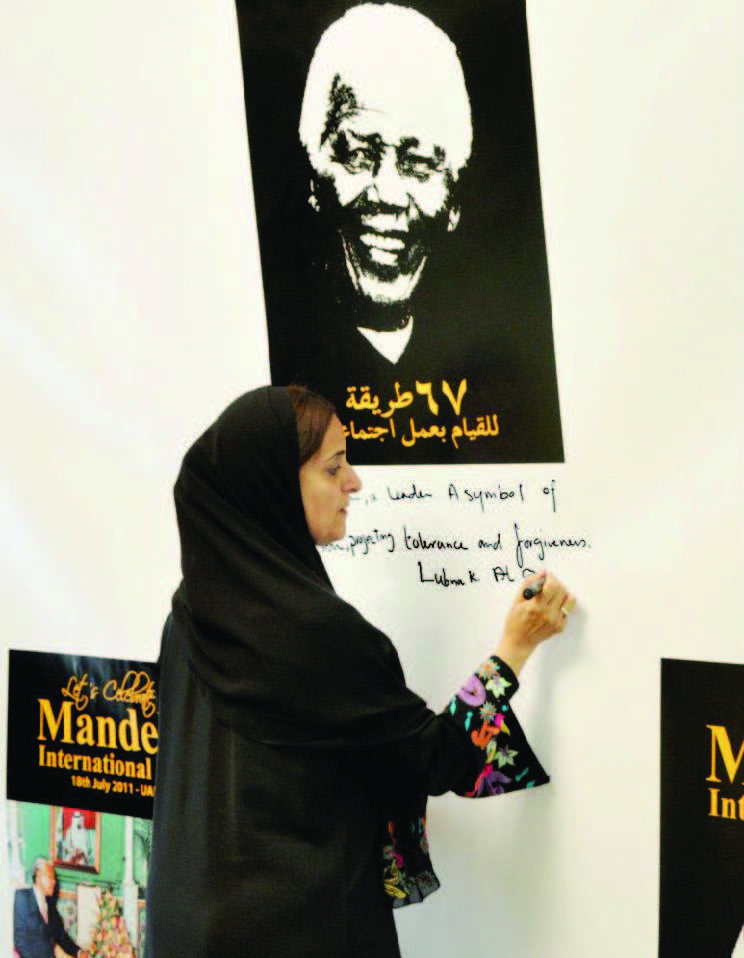 ٦٧ طريقة
للقيام بعمل اجتما
a leader A symbol of
projecting tolerance and forgiveness.
Lubna K. Al Q
Let's Celebrate
Mande
International
18th July 2011 - UA
M
Int